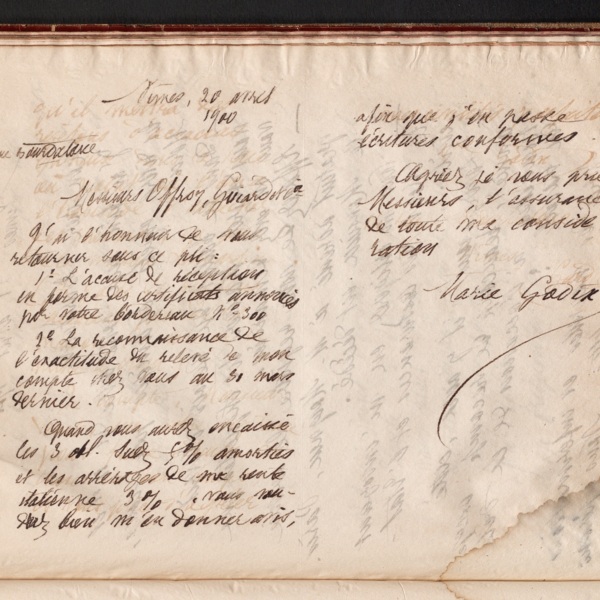 Nîmes, 20 avril
1900
rue Bourdaloue
Messieurs Offroy, Guiard & Cie
J'ai l'honneur de vous
retourner sous ce pli :
1º L'accusé de réception
en forme des certificats annoncés
par votre bordereau Nº 300
2º La reconnaissance de
l'exactitude du relevé de mon
compte chez vous au 31 mars
dernier.
Quand vous aurez encaissé
les 3 obl. Suez 5% amorties
et les arrérages de ma rente
italienne 3%, vous vou-
drez bien m'en donner avis,
afin que j'en passe
écritures conformes.
Agréez je vous prie
Messieurs, l'assurance
de toute ma considé
ration
Marie Godix